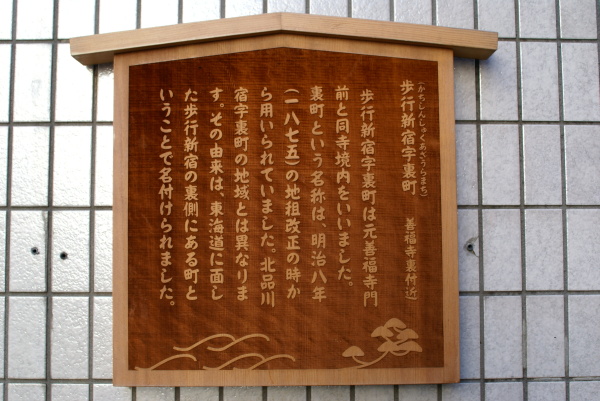 (かちしんしゅくあざうらまち)
歩行新宿字裏町　善福寺裏付近
歩行新宿字裏町は元善福寺門
前と同寺境内をいいました。
裏町という名称は、明治八年
(一八七五)の地租改正の時か
ら用いられていました。北品川
宿字裏町の地域とは異なりま
す。その由来は、東海道に面し
た歩行新宿の裏側にある町と
いうことで名付けられました。